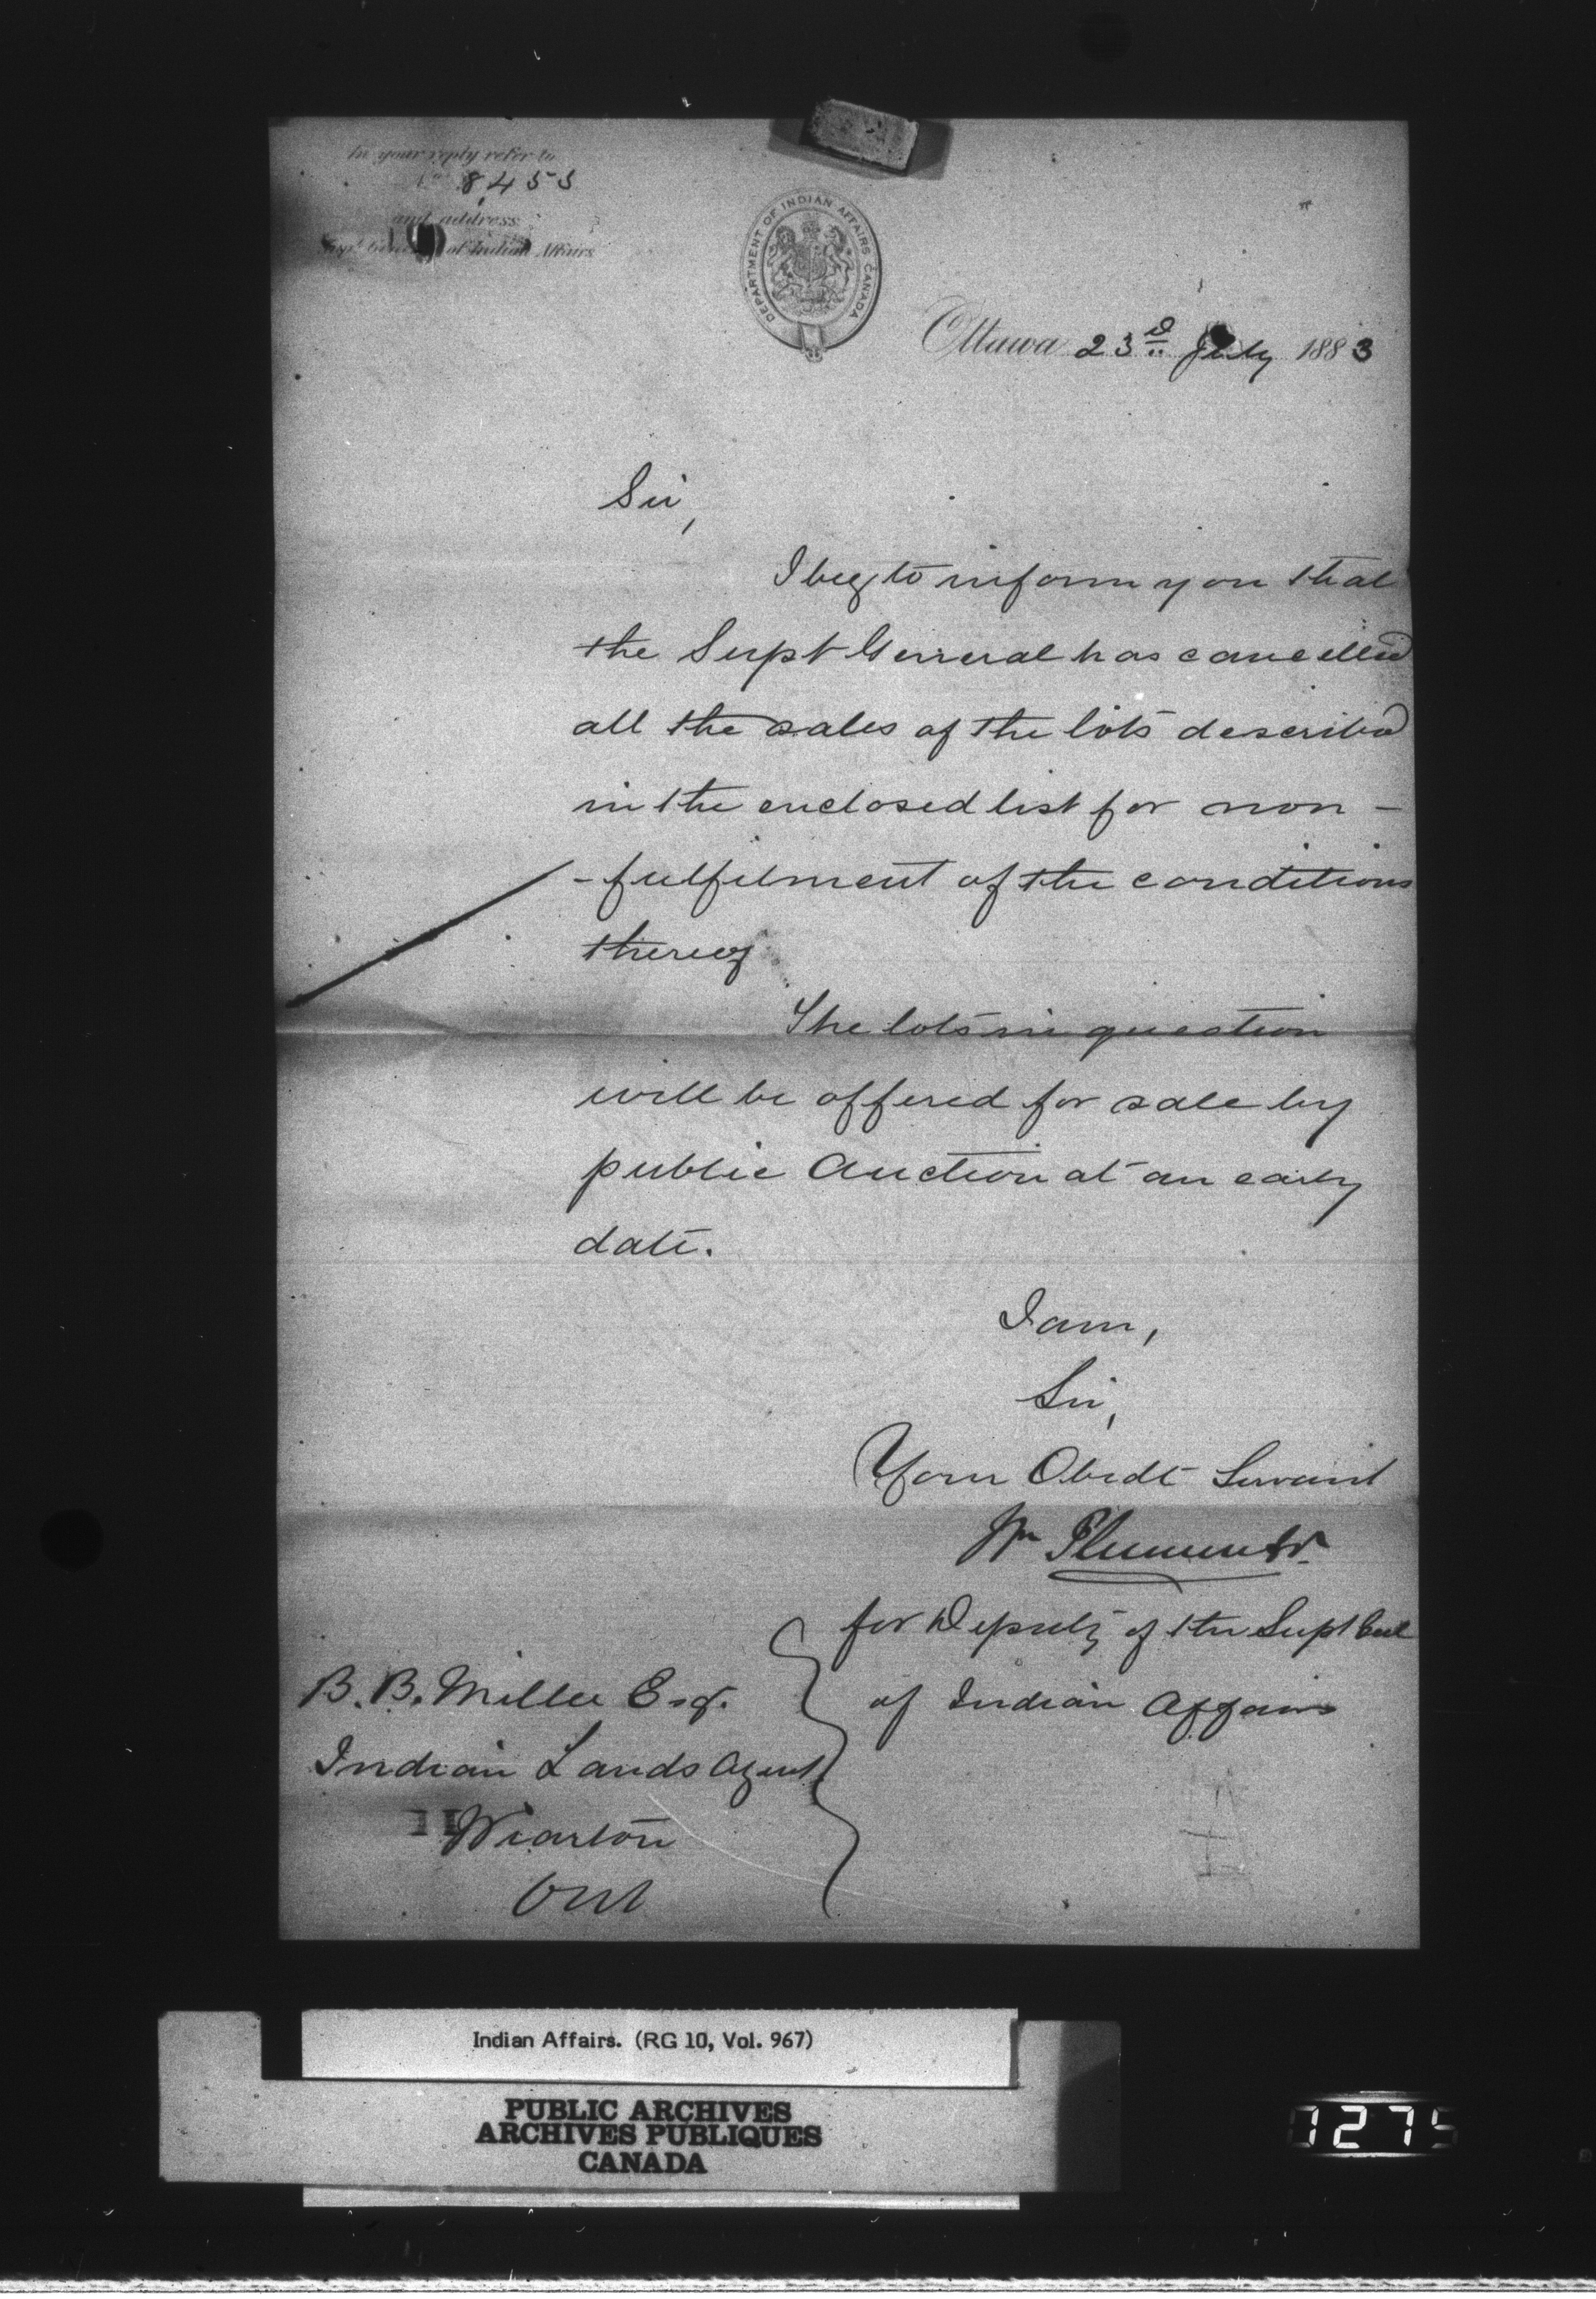 In your reply refer to
No 8453
and address
Supt General of Indian Affairs
DEPARTMENT OF INDIAN AFFAIRS CANADA
Ottawa 23d July 1883
Sir,
I beg to inform you that
the Supt General has cancelled
all the sales of the lots described
in the enclosed list for non-
-fulfilment of the conditions
thereof
The lots in question
will be offered for sale by
public Auction at an early
date.
I am,
Sir,
Your Obedt Servant
Wm Plummer
for Deputy of the Supt Genl
of Indian Affairs
B. B. Miller Esq.
Indian Lands Agent
Wiarton
Ont
Indian Affairs. (RG 10, Vol. 967)
PUBLIC ARCHIVES
ARCHIVES PUBLIQUES
CANADA
7275